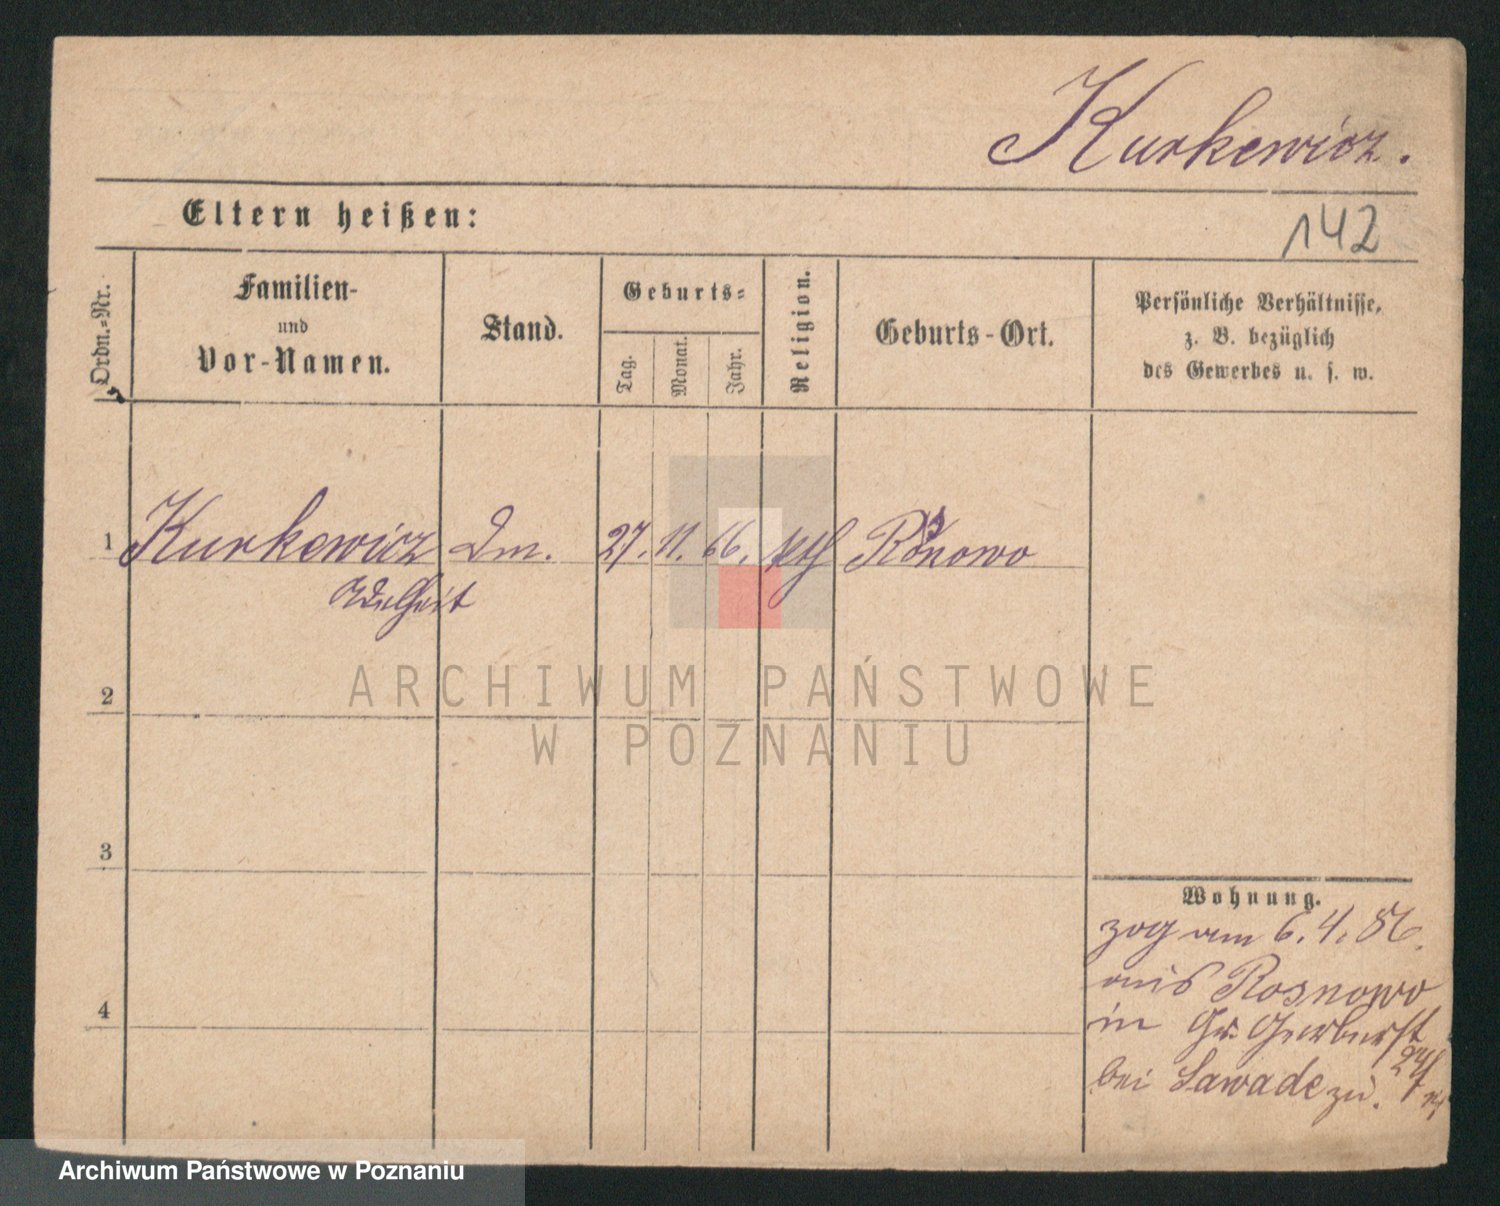 Kurkewicz.
Eltern heißen:
142
Ordn.-Nr.
Familien-
und
Vor-Namen.
Stand.
Geburts-
Tag.
Monat.
Jahr.
Religion.
Geburts-Ort.
Persönliche Verhältnisse,
z. B. bezüglich
des Gewerbes u. s. w.
1 Kurkewicz Dm. 27. 11. 66. kth Rosnowo
Adelheit
2
3
4
Wohnung.
zog am 6.4.86.
aus Rosnowo
in Gr. Gerberst
bei Sawade zu.
ARCHIWUM PAŃSTWOWE
W POZNANIU
Archiwum Państwowe w Poznaniu